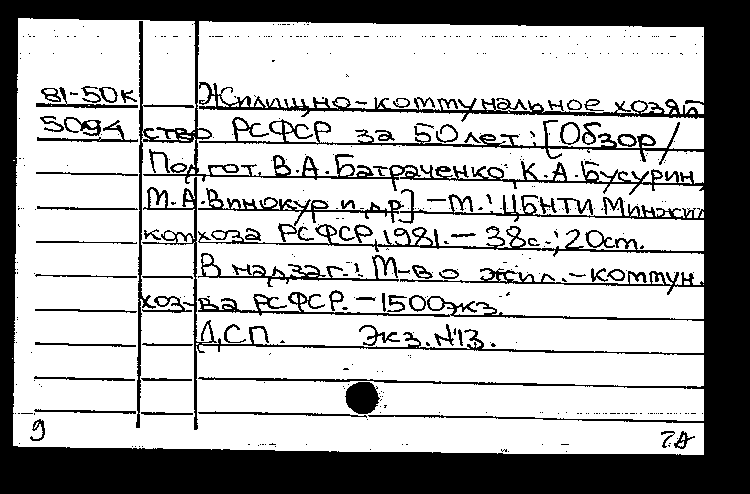 81-50к Жилищно-коммунальное хозяй
5094 ство РСФСР за 50 лет: [Обзор /
Подгот. В.А. Батраченко, К.А. Бусурин,
М.А. Винокур и др.] - М.: ЦБНТИ Минжил
комхоза РСФСР, 1981. - 38с.; 20ст.
В надзаг.: М-во жил.-коммун.
хоз-ва РСФСР. - 1500экз.
ДСП. Экз.N13.
9